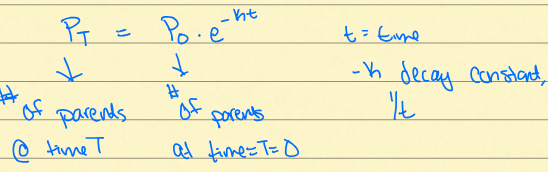 P_T = P_0 · e^-kt
t = time
↓ ↓
-k decay constant,
1/t
# of parents
# of parents
@ time T
at time=T=0